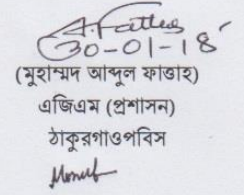 A. Fattah
30-01-18
(মুহাম্মদ আব্দুল ফাত্তাহ)
এজিএম (প্রশাসন)
ঠাকুরগাওপবিস